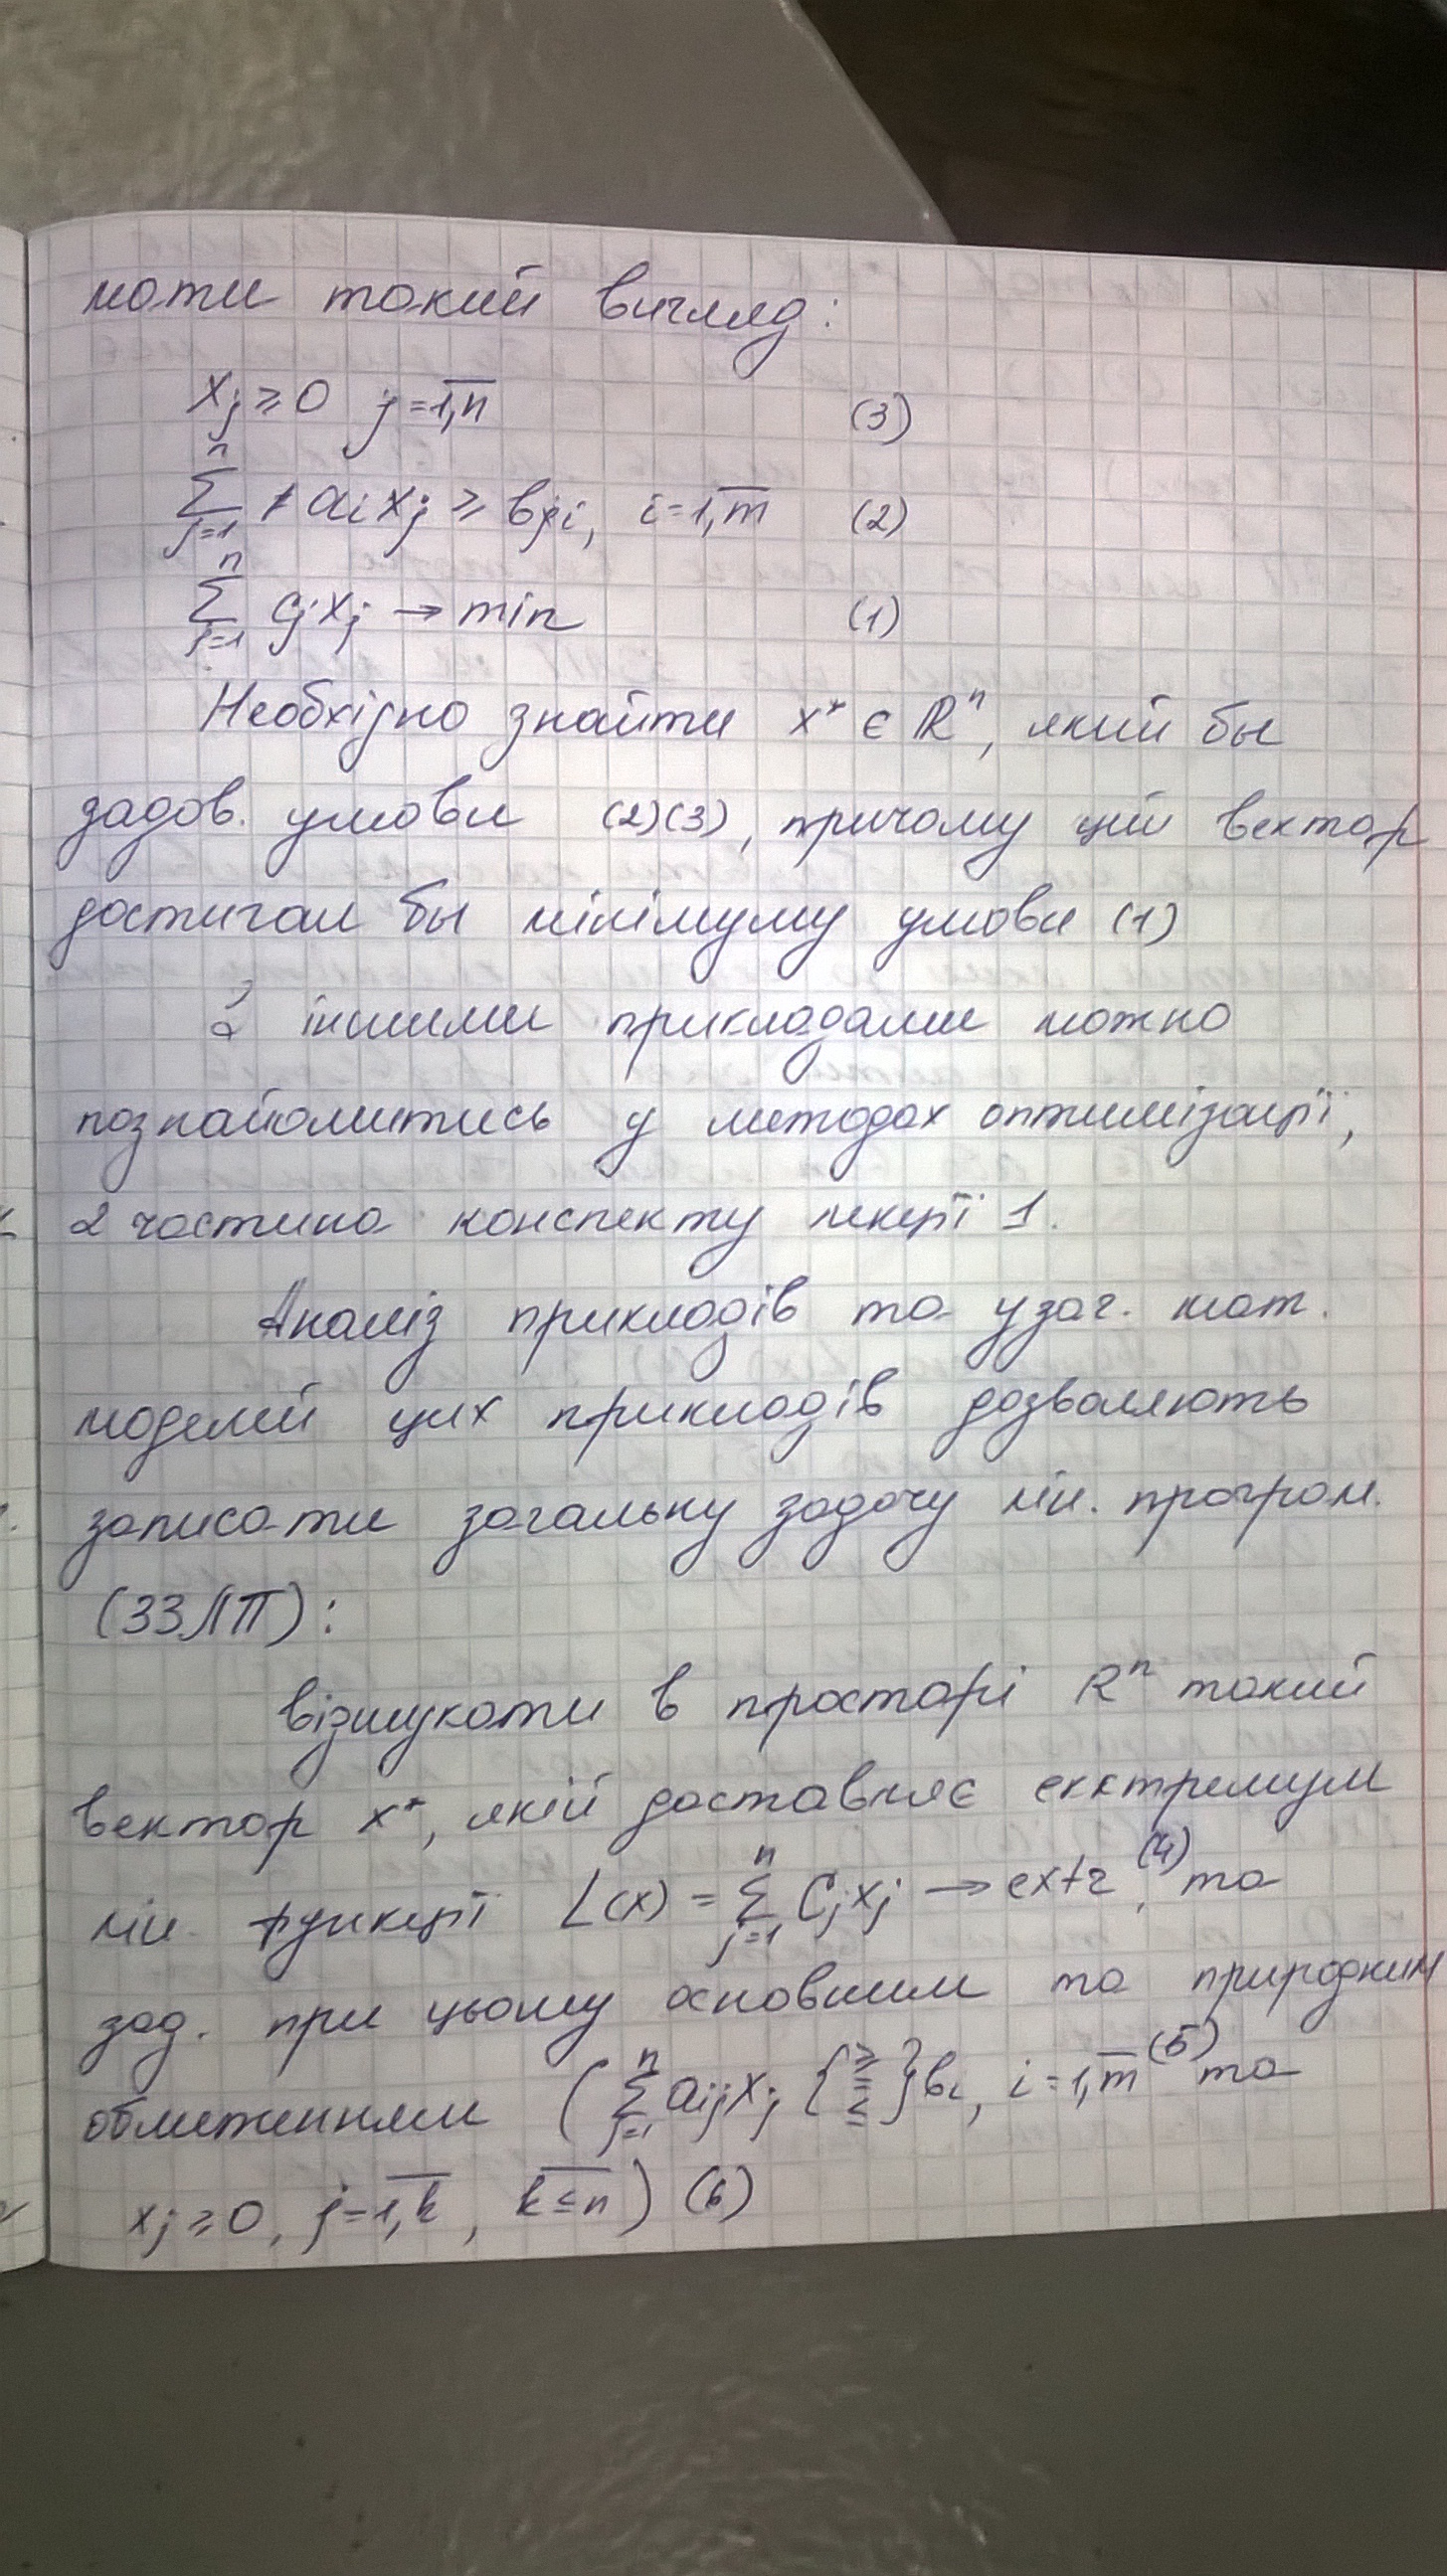 мати такий вигляд:
xj ≥ 0 j = 1,n (3)
n ∑ j=1 ai xj ≥ bi, i = 1,m (2)
n ∑ j=1 cj xj → min (1)
Необхідно знайти x* ∈ Rⁿ, який бы
задов. умови (2)(3), причому цій вектор
достигал бы мінімуму умови (1)
З іншими прикладами можно
познайомитись у методах оптимізації,
2 частина конспекту лекції 1.
Аналіз прикладів та узаг. мат.
моделей цих прикладів дозваляють
записати загальну задачу лін. програм.
(ЗЗЛП):
візшукати в просторі Rⁿ такий
вектор x*, якій доставляє екктремум
лін. функції L(x) = n ∑ j=1 Cj xj → extr, (4) та
зад. при цьому основним та природним
обмеженням ( n ∑ j=1 aij xj {≥ = ≤} bi, i = 1,m (5) та
xj ≥ 0, j = 1,k, k ≤ n) (6)